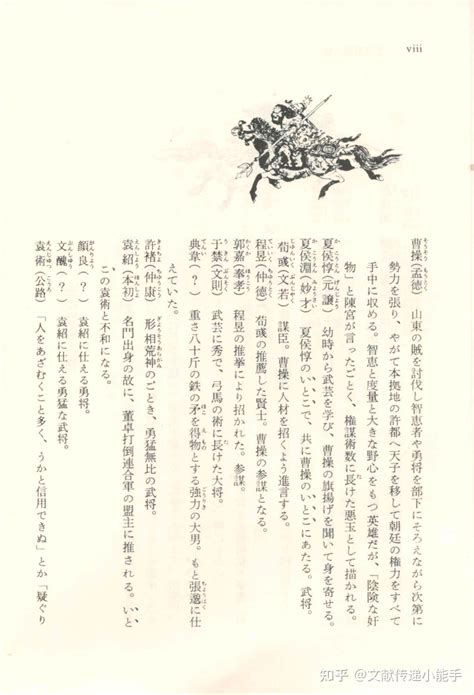 viii
曹操(孟徳) 山東の賊を討伐し智恵者や勇将を部下にそろえながら次第に
勢力を張り、やがて本拠地の許都へ天子を移して朝廷の権力をすべて
手中に収める。智恵と度量と大きな野心をもつ英雄だが、「陰険な奸
物」と陳宮が言ったごとく、権謀術数に長けた悪玉として描かれる。
夏侯惇(元譲) 幼時から武芸を学び、曹操の旗揚げを聞いて身を寄せる。
夏侯淵(妙才) 夏侯惇のいとこで、共に曹操のいとこにあたる。武将。
荀彧(文若) 謀臣。曹操に人材を招くよう進言する。
程昱(仲徳) 荀彧の推薦した賢士。曹操の参謀となる。
郭嘉(奉孝) 程昱の推挙により招かれた。参謀。
于禁(文則) 武芸に秀で、弓馬の術に長けた大将。
典韋(?) 重さ八十斤の鉄の矛を得物とする強力の大男。もと張邈に仕
えていた。
許褚(仲康) 形相荒神のごとき、勇猛無比の武将。
袁紹(本初) 名門出身の故に、董卓打倒連合軍の盟主に推される。いと
この袁術と不和になる。
顔良(?) 袁紹に仕える勇将。
文醜(?) 袁紹に仕える勇猛な武将。
袁術(公路) 「人をあざむくこと多く、うかと信用できぬ」とか「疑ぐり
知乎 @文献传递小能手